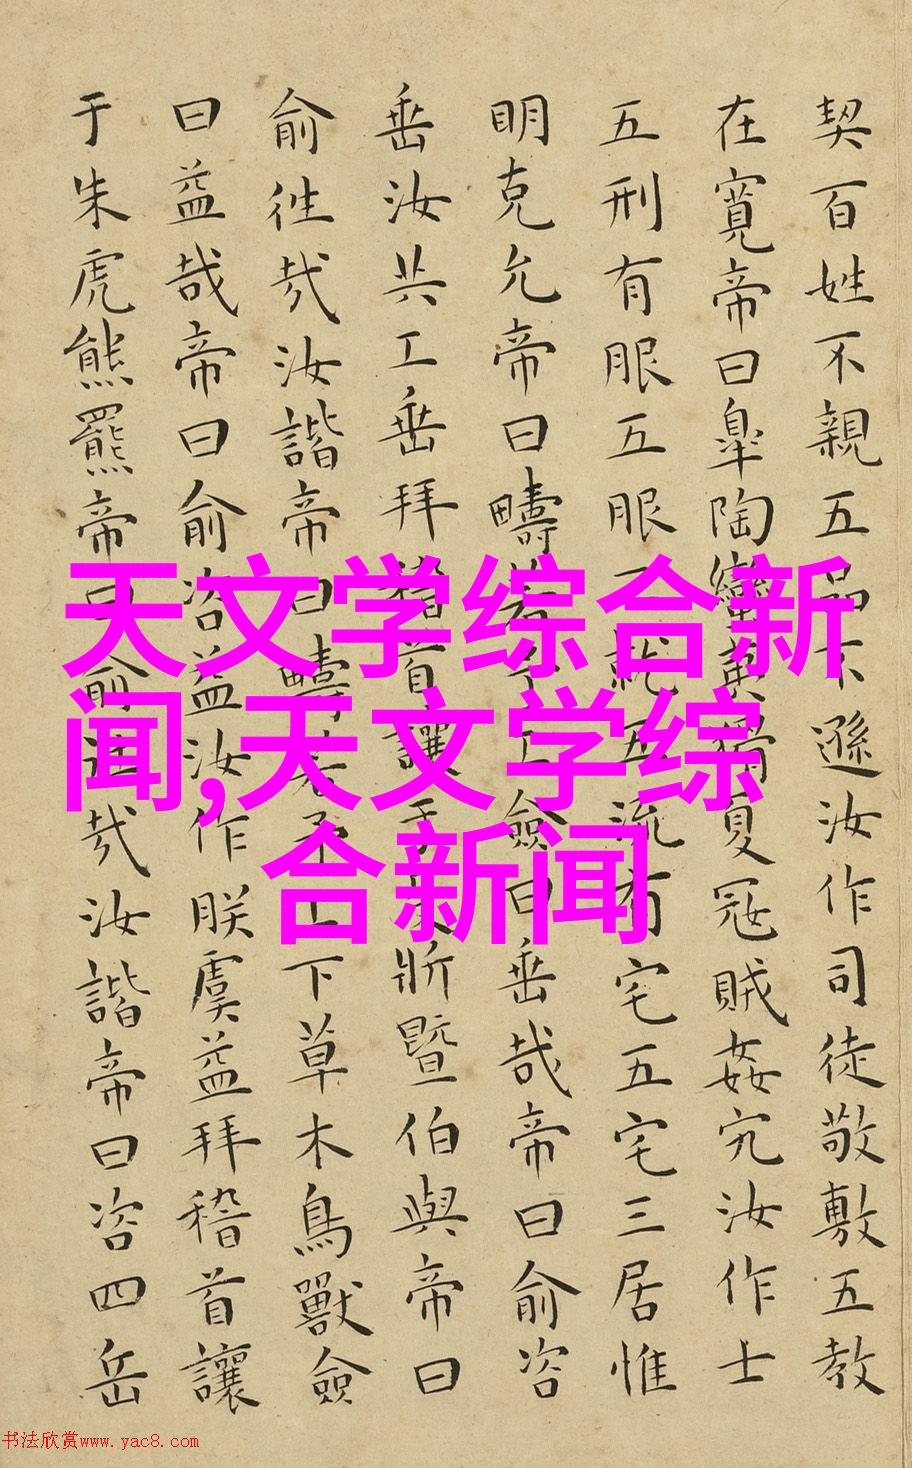 契百姓不親五品不遜汝作司徒敬敷五教
在寬帝曰臯陶蠻夷猾夏寇賊姦宄汝作士
五刑有服五服三就五流有宅五宅三居惟
明克允帝曰疇若予工僉曰垂哉帝曰俞咨
垂汝共工垂拜稽首讓于殳斨暨伯與帝曰
俞往哉汝諧帝曰疇若予上下草木鳥獸僉
曰益哉帝曰俞咨益汝作朕虞益拜稽首讓
于朱虎熊羆帝曰俞往哉汝諧帝曰咨四岳
天文学综合新
闻,天文学综
合新闻
书法欣赏www.yac8.com